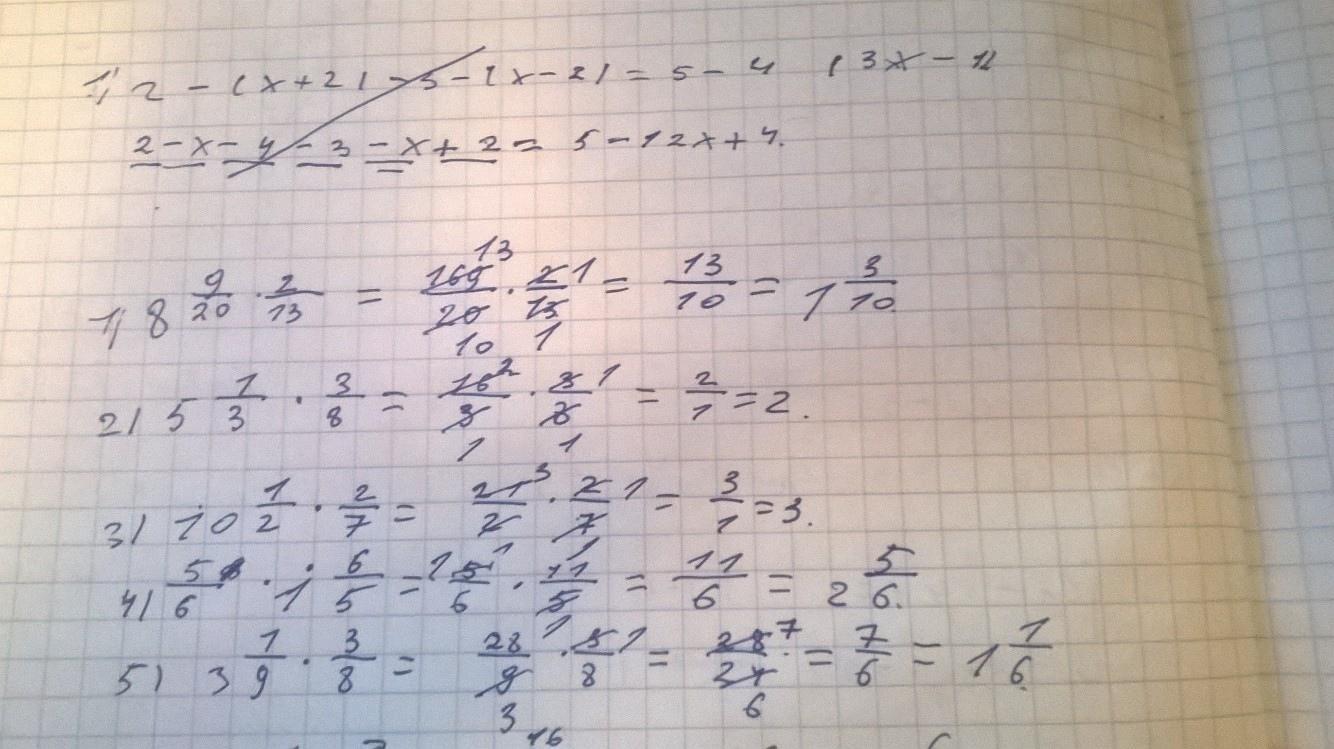 1) 2 - (x + 2) - 3 - (x - 2) = 5 - 4 (3x - 1)
2 - x - 4 - 3 - x + 2 = 5 - 12x + 4.
1) 8 9/20 · 2/13 = 169/20 · 2/13 = 13/10 = 1 3/10.
2) 5 1/3 · 3/8 = 16/3 · 3/8 = 2/1 = 2.
3) 10 1/2 · 2/7 = 21/2 · 2/7 = 3/1 = 3.
4) 5/6 · 1 6/5 = 5/6 · 11/5 = 11/6 = 2 5/6.
5) 3 1/9 · 3/8 = 28/9 · 3/8 = 28/24 = 7/6 = 1 1/6.